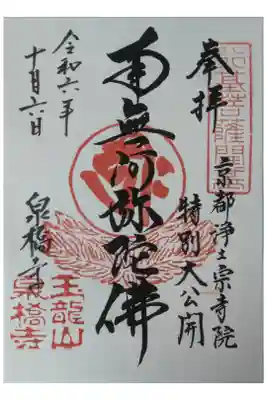 奉拝
行基菩薩開基
京都浄土宗寺院
特別大公開
南無阿弥陀佛
令和六年
十月六日
泉橋寺
玉龍山
泉橋寺